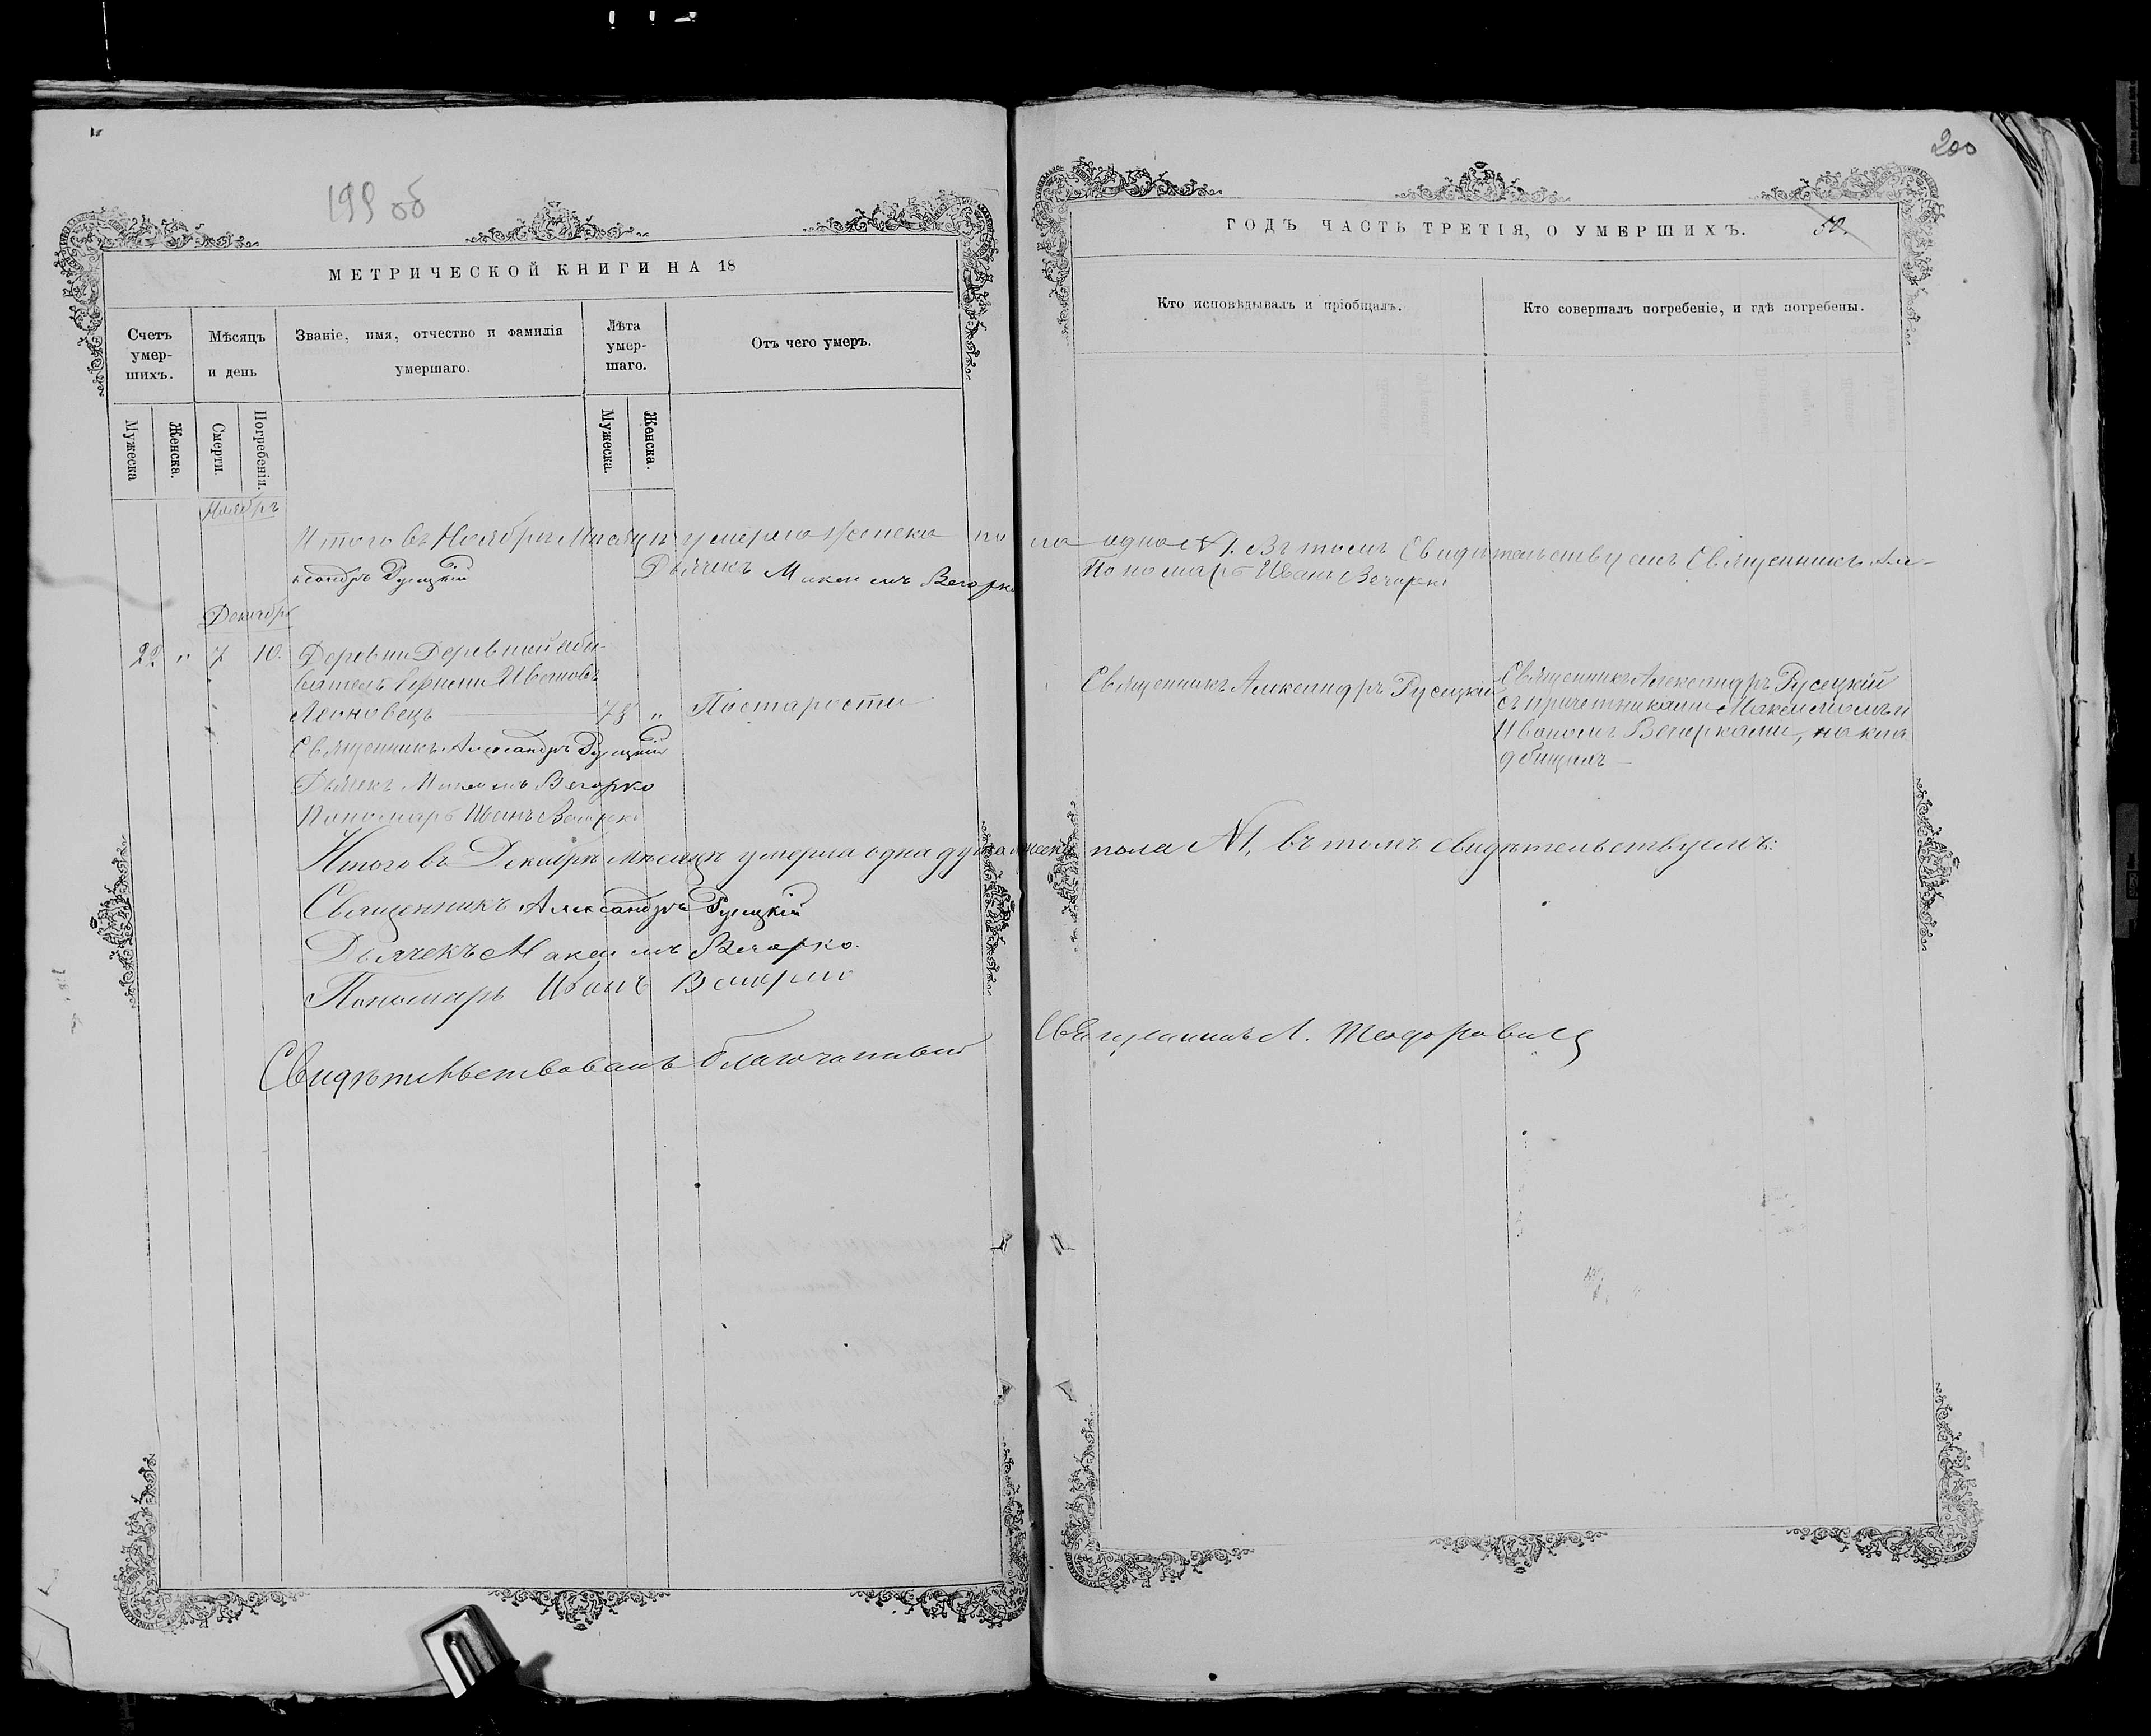 199 об
200
МЕТРИЧЕСКОЙ КНИГИ НА 18
ГОДЪ ЧАСТЬ ТРЕТІЯ, О УМЕРШИХЪ.
50.
Счетъ умер-шихъ.
Мѣсяцъ и день
Званіе, имя, отчество и фамилія умершаго.
Лѣта умер-шаго.
Отъ чего умеръ.
Кто исповѣдывалъ и пріобщалъ.
Кто совершалъ погребеніе, и гдѣ погребены.
Мужеска
Женска.
Смерти.
Погребенія.
Мужеска.
Женска.
Ноябрь
Итого въ Ноябрѣ Мѣсяцѣ умерло женска пола одна №1. Въ томъ Свидѣтельствуемъ Священникъ Але-
ксандръ Русецкій Дьячекъ Максимъ Вечорко Пономарь Иванъ Вечорко
Декабрь
22 " 7 10.
Деревни
Ивановъ
Леоновецъ 78 " По старости
Священникъ Александръ Русецкій
Священникъ Александръ Русецкій
съ причетниками Максимомъ и
Иваномъ Вечорками, на кла
дбищѣ
Священникъ Александръ Русецкій
Дьячекъ Максимъ Вечорко
Пономарь Иванъ Вечорко
Итого въ Декабрѣ мѣсяцѣ умерла одна душа мужеск. пола №1, въ томъ свидѣтельствуемъ:
Священникъ Александръ Русецкій
Дьячекъ Максимъ Вечорко.
Пономарь Иванъ Вечорко
Свидѣтельствовалъ благочинный Священникъ Л. Теодоровичъ